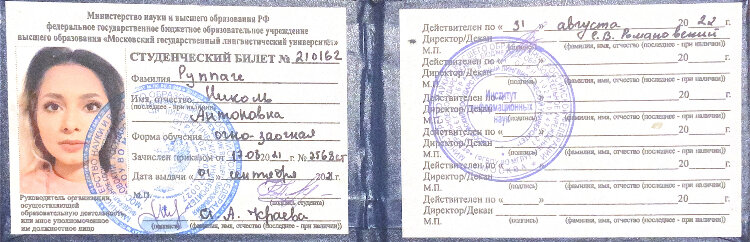 Министерство науки и высшего образования РФ
федеральное государственное бюджетное образовательное учреждение
высшего образования «Московский государственный лингвистический университет»
СТУДЕНЧЕСКИЙ БИЛЕТ № 210162
Фамилия Руппаге
Имя, отчество Николь
(последнее - при наличии)
Антоновна
Форма обучения очно-заочная
Зачислен приказом от 17.08 2021 г. № 2563ст
Дата выдачи «01» сентября 2021 г.
М.П.
(подпись студента)
Руководитель организации,
осуществляющей
образовательную деятельность,
или иное уполномоченное
им должностное лицо
О. А. Краева
(подпись) (фамилия, имя, отчество (последнее - при наличии))
Действителен по «31» августа 2022 г.
Директор/Декан С.В. Романовский
М.П. (подпись) (фамилия, имя, отчество (последнее - при наличии))
Действителен по « » 20 г.
Директор/Декан
М.П. (подпись) (фамилия, имя, отчество (последнее - при наличии))
Действителен по « » 20 г.
Директор/Декан
М.П. (фамилия, имя, отчество (последнее - при наличии))
Действителен по « » 20 г.
Директор/Декан
М.П. (подпись) (фамилия, имя, отчество (последнее - при наличии))
Действителен по « » 20 г.
Директор/Декан
М.П. (подпись) (фамилия, имя, отчество (последнее - при наличии))
Институт
информационных
наук